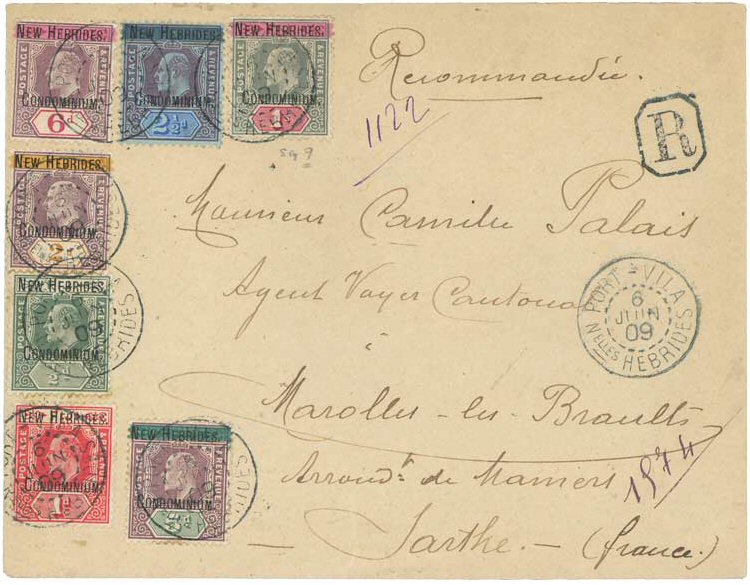 NEW HEBRIDES.
POSTAGE & REVENUE
CONDOMINIUM.
6d
NEW HEBRIDES.
POSTAGE & REVENUE
CONDOMINIUM.
2½d
NEW HEBRIDES.
POSTAGE & REVENUE
CONDOMINIUM.
Recommandée.
1122
R
SG 9
NEW HEBRIDES.
POSTAGE & REVENUE
CONDOMINIUM.
2d
Monsieur Camille Palais
Agent Voyer Cantonal
à
PORT-VILA
6
JUIN
09
Nelles HEBRIDES
NEW HEBRIDES.
POSTAGE & REVENUE
CONDOMINIUM.
½d
JUIN
09
Marolles-les-Braults
NEW HEBRIDES.
POSTAGE & REVENUE
CONDOMINIUM.
1d
NEW HEBRIDES.
POSTAGE & REVENUE
CONDOMINIUM.
Arrondt de Mamers
1574
- Sarthe - (france.)